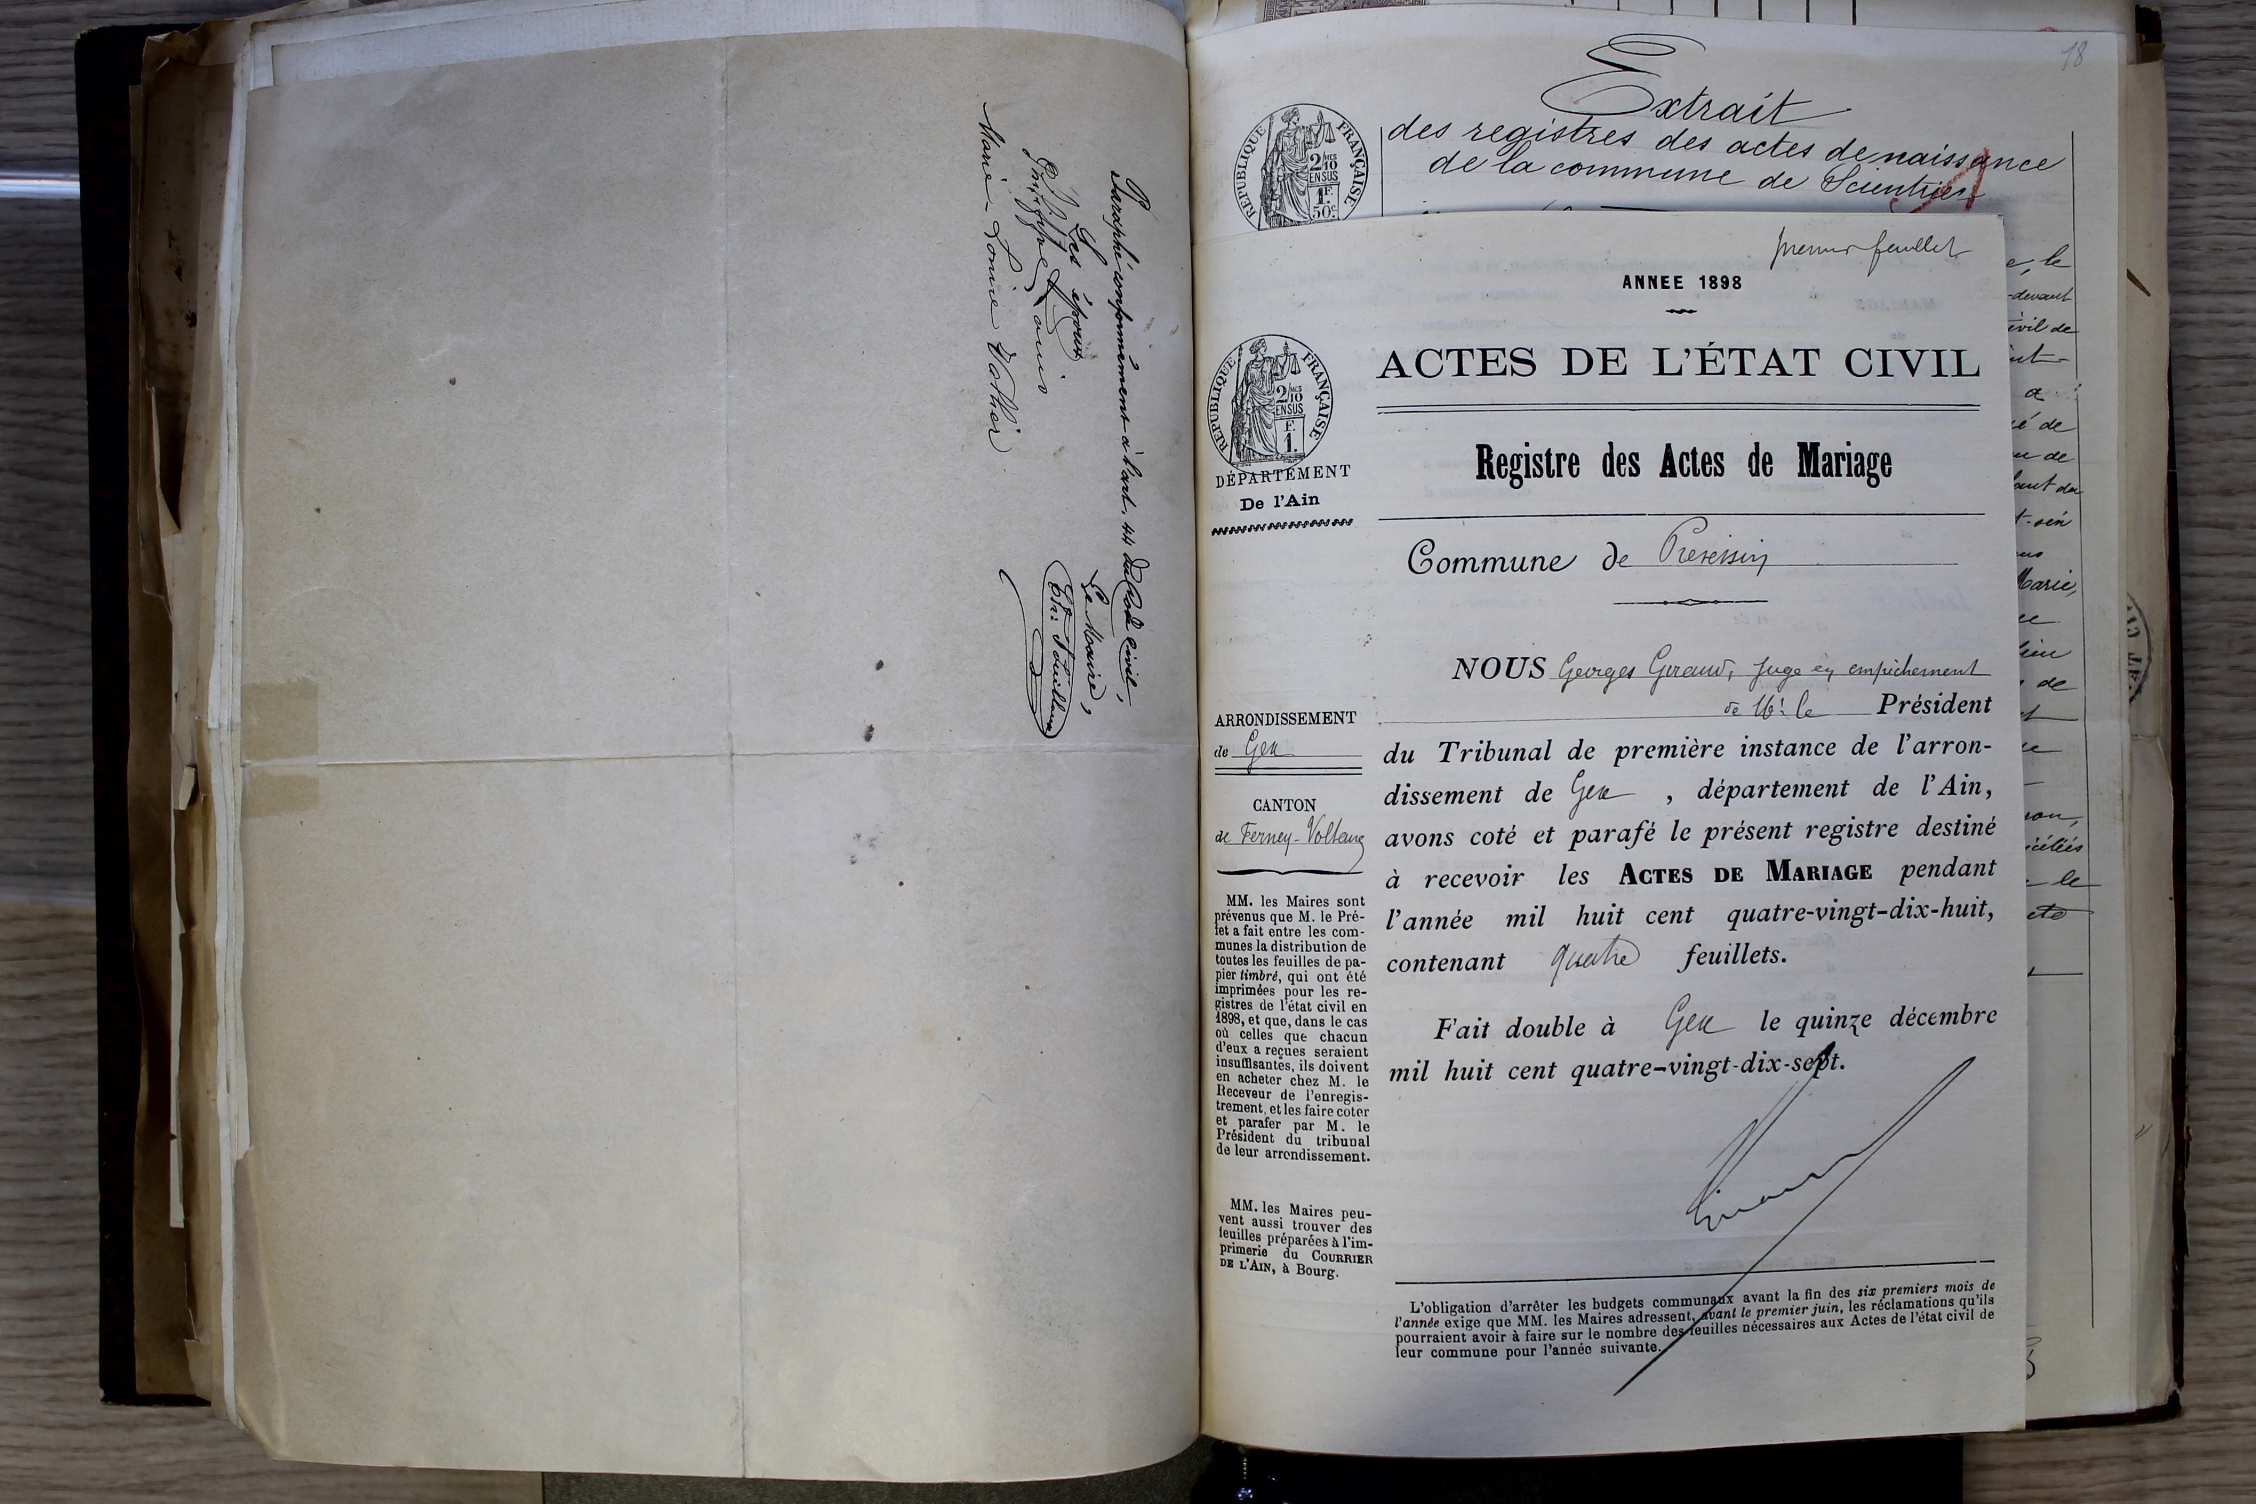 Paraphé conformément à l'art. 44 du Code Civil,
Les époux Le Maire,
Louis
Marie Louise Vothier
18
Extrait
des registres des actes de naissance
de la commune de Scientrier
RÉPUBLIQUE FRANÇAISE
2/10
EN SUS
1F.
50c.
e, le
-devant
ivil de
a
é de
de
Marie,
lieu
de
le
premier feuillet
ANNEE 1898
ACTES DE L'ÉTAT CIVIL
RÉPUBLIQUE FRANÇAISE
2/10
EN SUS
F.
1.
DÉPARTEMENT
De l'Ain
Registre des Actes de Mariage
Commune de Prévessin
NOUS Georges Giraud, Juge en empêchement
de Mr. le Président
du Tribunal de première instance de l'arron-
dissement de Gex , département de l'Ain,
avons coté et parafé le présent registre destiné
à recevoir les ACTES DE MARIAGE pendant
l'année mil huit cent quatre-vingt-dix-huit,
contenant quatre feuillets.
Fait double à Gex le quinze décembre
mil huit cent quatre-vingt-dix-sept.
Giraud
ARRONDISSEMENT
de Gex
CANTON
de Ferney-Voltaire
MM. les Maires sont
prévenus que M. le Pré-
fet a fait entre les com-
munes la distribution de
toutes les feuilles de pa-
pier timbré, qui ont été
imprimées pour les re-
gistres de l'état civil en
1898, et que, dans le cas
où celles que chacun
d'eux a reçues seraient
insuffisantes, ils doivent
en acheter chez M. le
Receveur de l'enregis-
trement, et les faire coter
et parafer par M. le
Président du tribunal
de leur arrondissement.
MM. les Maires peu-
vent aussi trouver des
feuilles préparées à l'im-
primerie du COURRIER
DE L'AIN, à Bourg.
L'obligation d'arrêter les budgets communaux avant la fin des six premiers mois de
l'année exige que MM. les Maires adressent, avant le premier juin, les réclamations qu'ils
pourraient avoir à faire sur le nombre des feuilles nécessaires aux Actes de l'état civil de
leur commune pour l'année suivante.